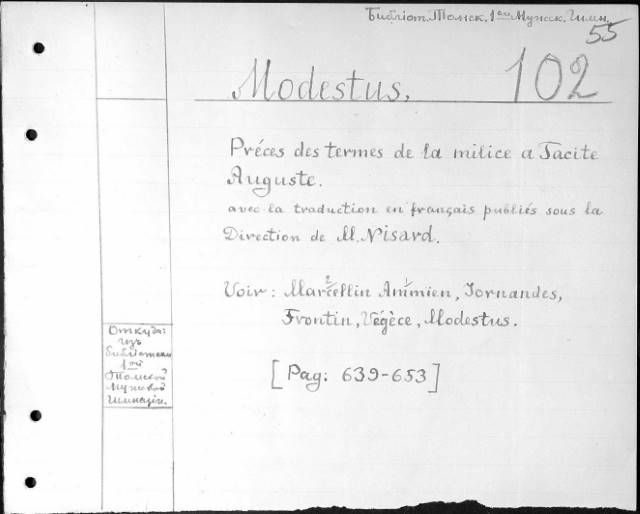 Библіот. Томск. 1ой Мужск. Гимн.
55
Modestus,
102
Préces des termes de la milice a Tacite
Auguste.
avec la traduction en français publiés sous la
Direction de M. Nisard.
Voir: Marcellin Ammien, Jornandes,
2 1
Frontin, Végèce, Modestus.
[Pag: 639-653]
Откуда:
изъ
библіотеки
1ой
Томской
Мужской
Гимназіи.